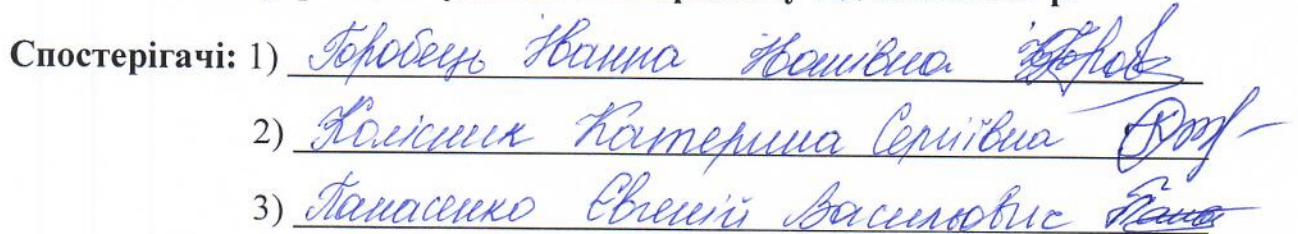 Спостерігачі: 1) Горобець Жанна Іванівна
2) Колісник Катерина Сергіївна
3) Панасенко Євгеній Васильович